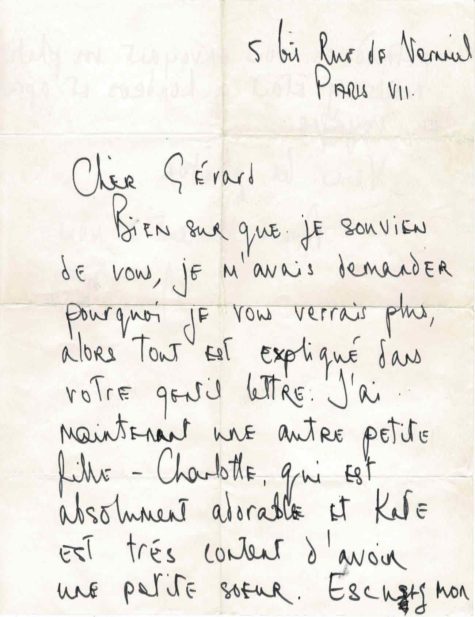 5 bis Rue de Verneuil
PARIS VII.
Cher Gérard
Bien sur que je souvien
de vous, je m'avais demander
pourquoi je vous verrais plus,
alors tout est expliqué dans
votre gentil lettre. J'ai
maintenant une autre petite
fille - Charlotte, qui est
absolument adorable et Kate
est trés content d'avoir
une petite soeur. mon